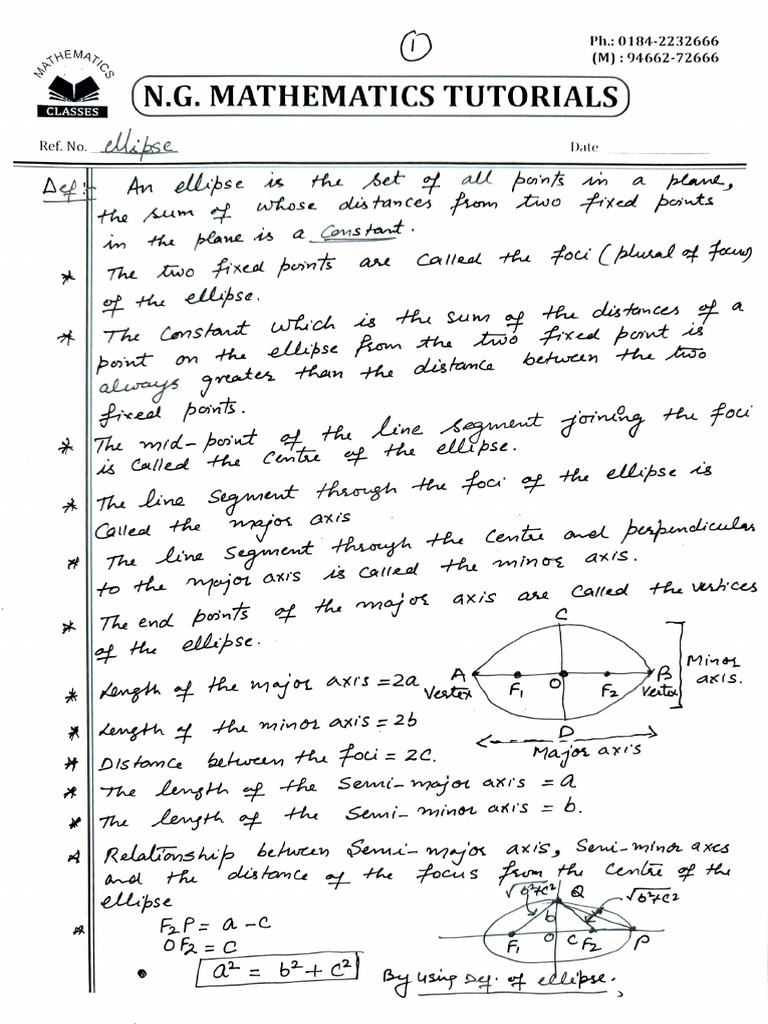 1
Ph.: 0184-2232666
(M) : 94662-72666
MATHEMATICS
CLASSES
N.G. MATHEMATICS TUTORIALS
Ref. No. ellipse
Date
Def:- An ellipse is the set of all points in a plane,
the sum of whose distances from two fixed points
in the plane is a Constant.
* The two fixed points are called the foci (plural of focus)
of the ellipse.
* The Constant which is the sum of the distances of a
point on the ellipse from the two fixed point is
always greater than the distance between the two
fixed points.
* The mid-point of the line segment joining the foci
is called the centre of the ellipse.
* The line segment through the foci of the ellipse is
called the major axis
* The line segment through the centre and perpendicular
to the major axis is called the minor axis.
* The end points of the major axis are called the vertices
of the ellipse.
C
A
Vertex
F1
O
F2
B
Vertex
Minor
axis.
D
Major axis
* Length of the major axis = 2a
* Length of the minor axis = 2b
* Distance between the foci = 2c.
* The length of the Semi-major axis = a
* The length of the Semi-minor axis = b.
* Relationship between Semi-major axis, Semi-minor axes
and the distance of the focus from the centre of the
ellipse
* F2P = a - c
OF2 = c
a² = b² + c²
√b²+c²
Q
√b²+c²
b
F1
O
C
F2
P
By using Def. of ellipse,